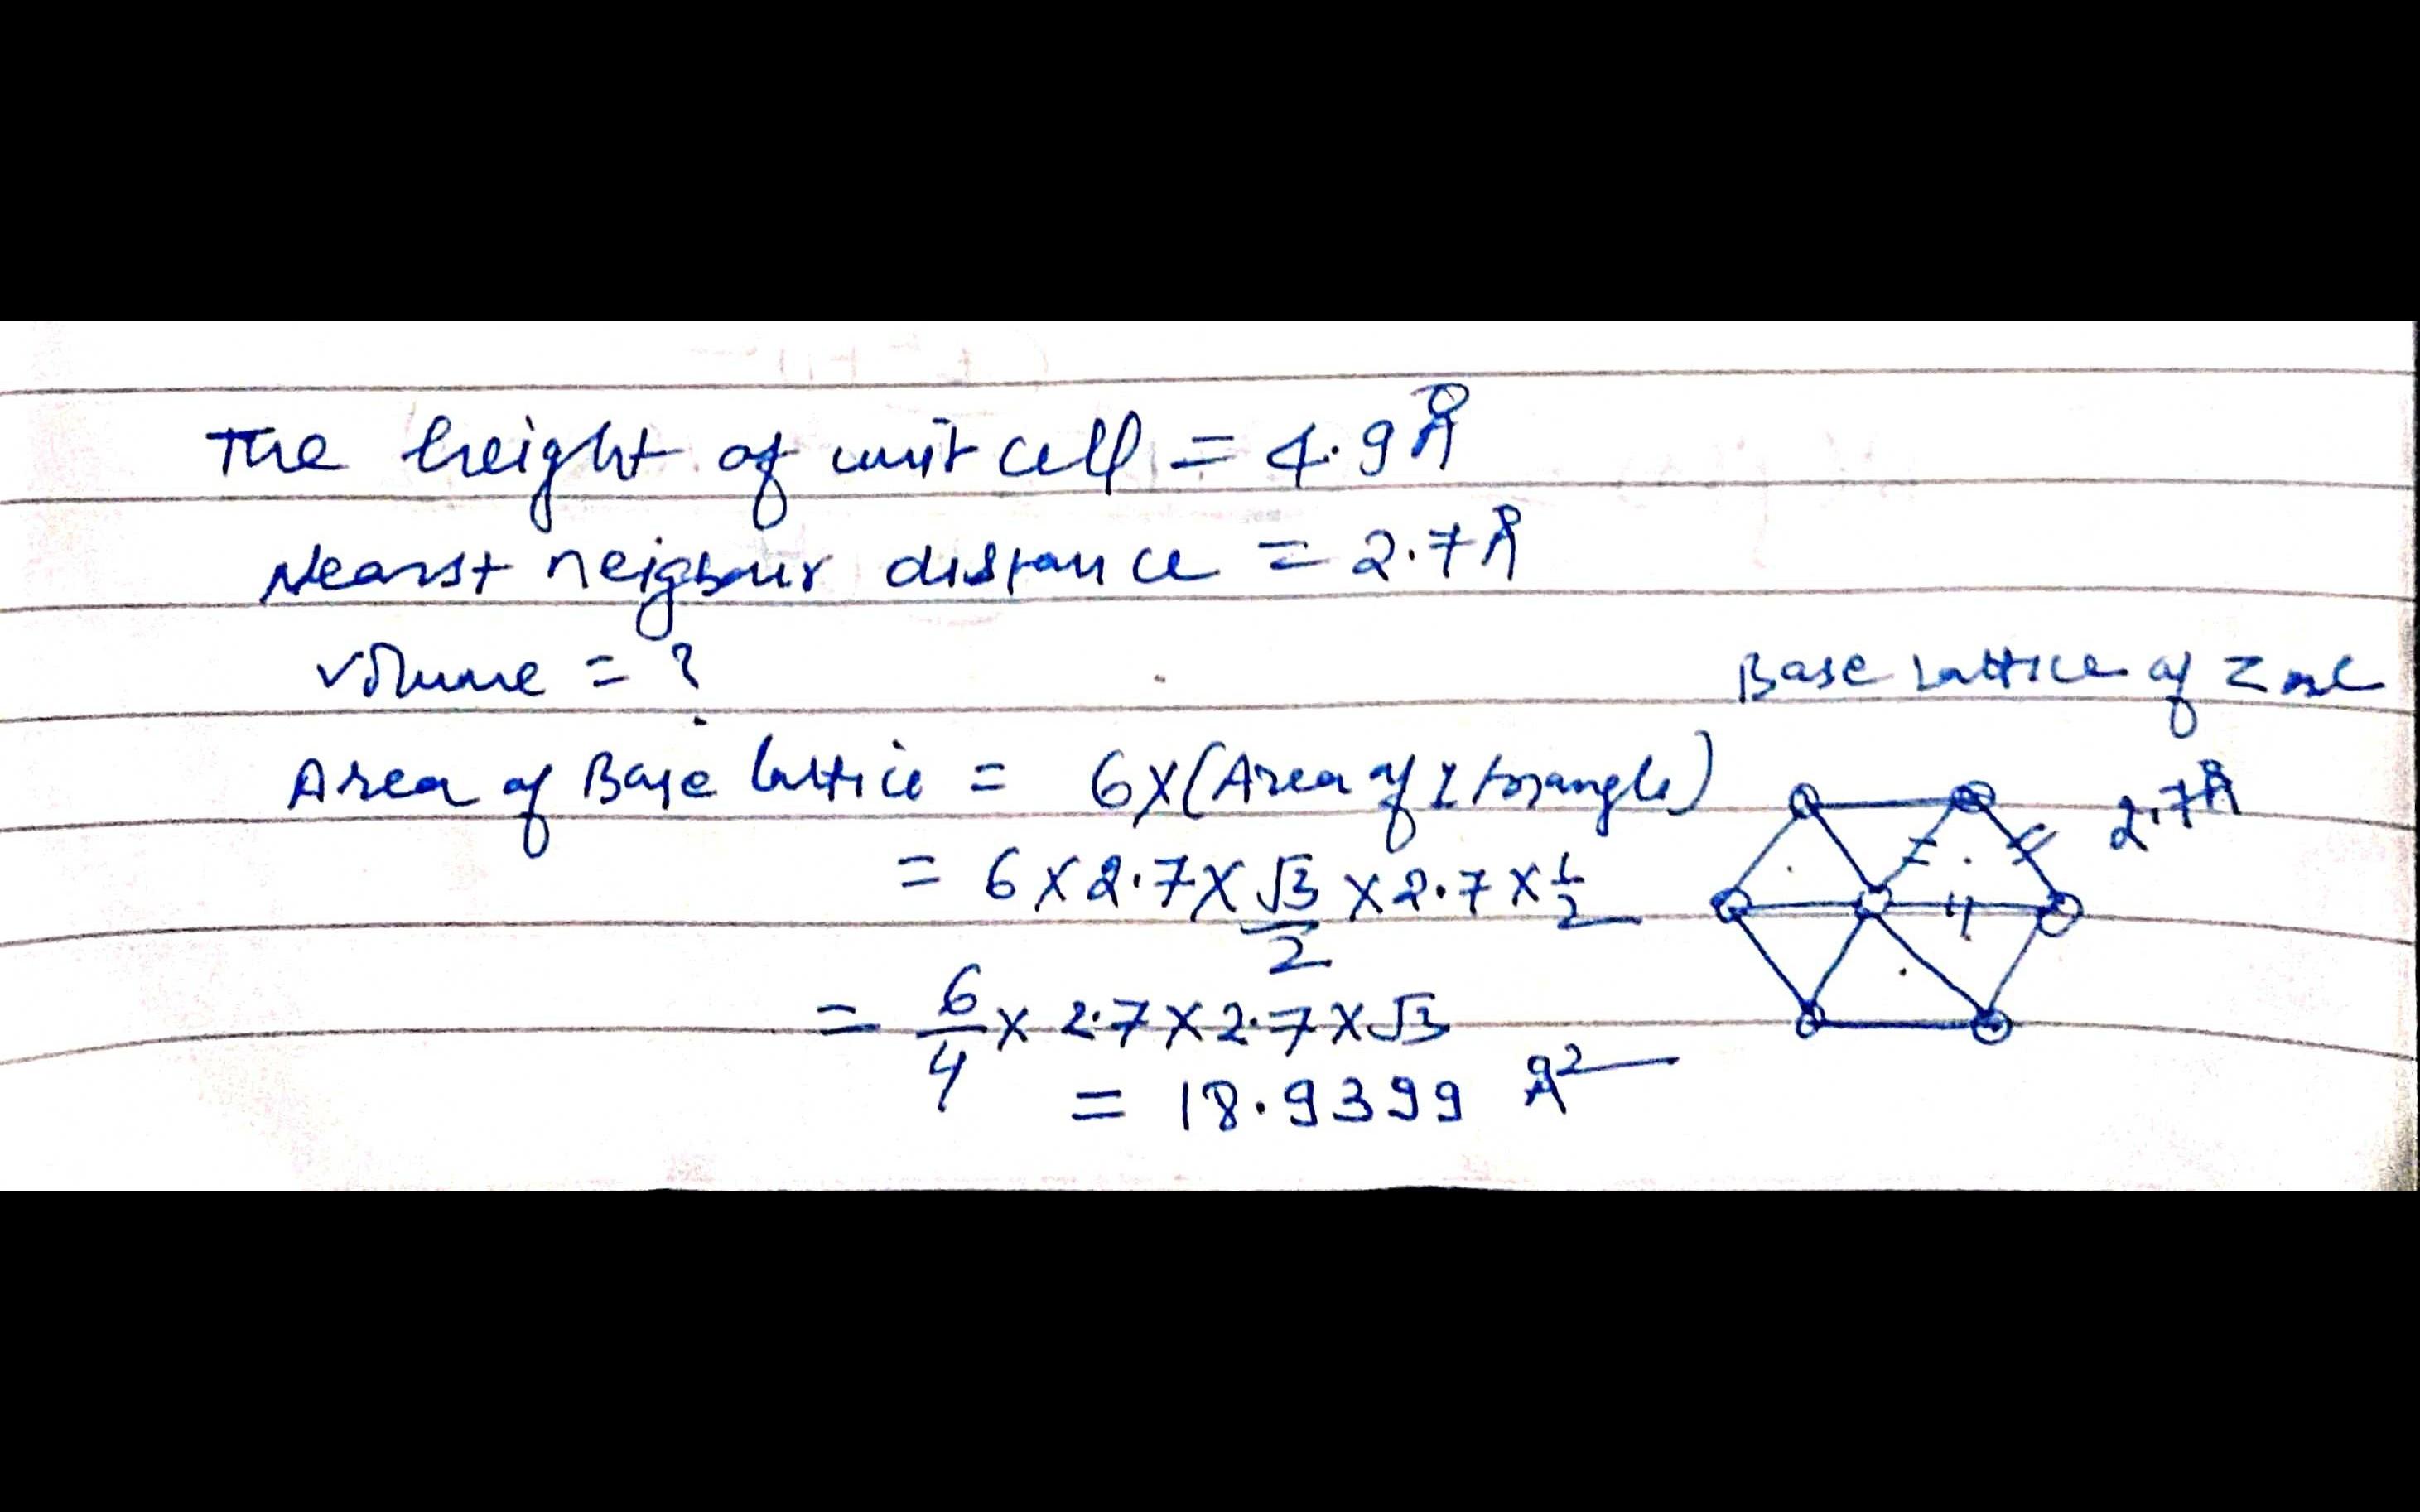 The height of unit cell = 4.9Å
Nearst neigbour distance = 2.7Å
volume = ?
Base Lattice of Zinc
Area of Base lattice = 6×(Area of 1 triangle)
2.7Å
= 6 × 2.7 × √3/2 × 2.7 × 1/2
= 6/4 × 2.7 × 2.7 × √3
= 18.9399 Å²